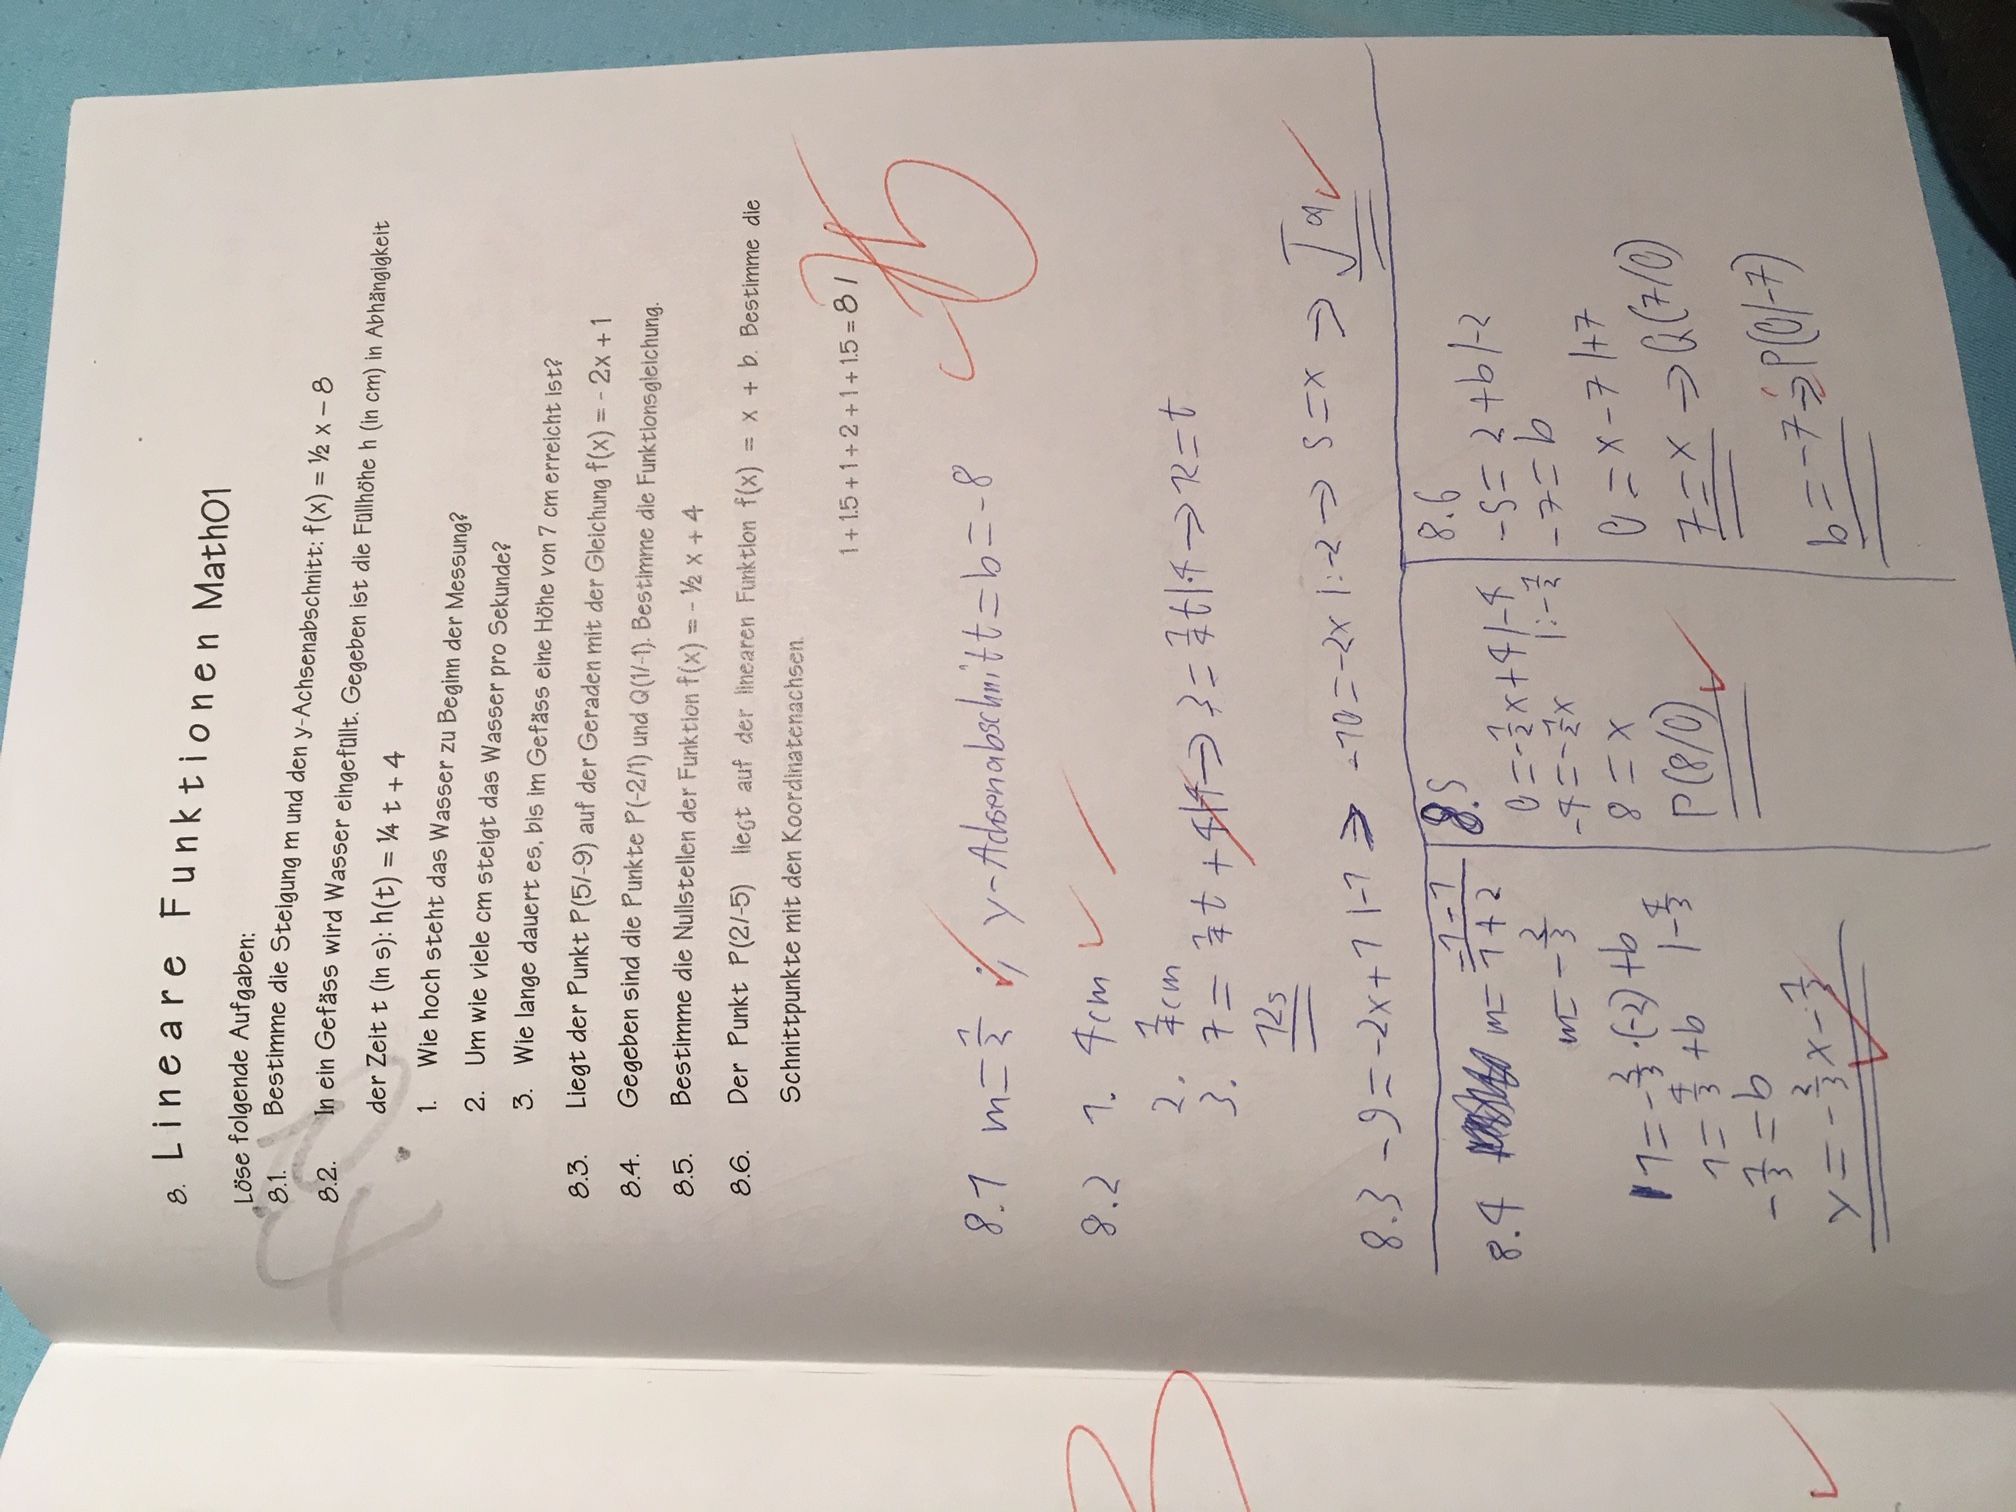 8. Lineare Funktionen Math01
Löse folgende Aufgaben:
8.1. Bestimme die Steigung m und den y-Achsenabschnitt: f(x) = ½ x – 8
8.2. In ein Gefäss wird Wasser eingefüllt. Gegeben ist die Füllhöhe h (in cm) in Abhängigkeit
der Zeit t (in s): h(t) = ¼ t + 4
1. Wie hoch steht das Wasser zu Beginn der Messung?
2. Um wie viele cm steigt das Wasser pro Sekunde?
3. Wie lange dauert es, bis im Gefäss eine Höhe von 7 cm erreicht ist?
8.3. Liegt der Punkt P(5/-9) auf der Geraden mit der Gleichung f(x) = - 2x + 1
8.4. Gegeben sind die Punkte P(-2/1) und Q(1/-1). Bestimme die Funktionsgleichung.
8.5. Bestimme die Nullstellen der Funktion f(x) = - ½ x + 4
8.6. Der Punkt P(2/-5) liegt auf der linearen Funktion f(x) = x + b. Bestimme die
Schnittpunkte mit den Koordinatenachsen.
1 + 1.5 + 1 + 2 + 1 + 1.5 = 8 /
8.1 m = 1/2 ; y-Achsenabschnitt = b = -8
8.2 1. 4cm
2. 1/4 cm
3. 7 = 1/4 t + 4 |-4 => 3 = 1/4 t |·4 => 12 = t
12s
8.3 -9 = -2x + 1 |-1 => -10 = -2x |:-2 => 5 = x => Ja
8.4 m = (-1-1)/(1+2)
m = -2/3
1 = -2/3 · (-2) + b
1 = 4/3 + b |-4/3
-1/3 = b
y = -2/3 x - 1/3
8.5
0 = -1/2 x + 4 |-4
-4 = -1/2 x |:-1/2
8 = x
P(8/0)
8.6
-5 = 2 + b |-2
-7 = b
0 = x - 7 |+7
7 = x => Q(7/0)
b = -7 => P(0/-7)